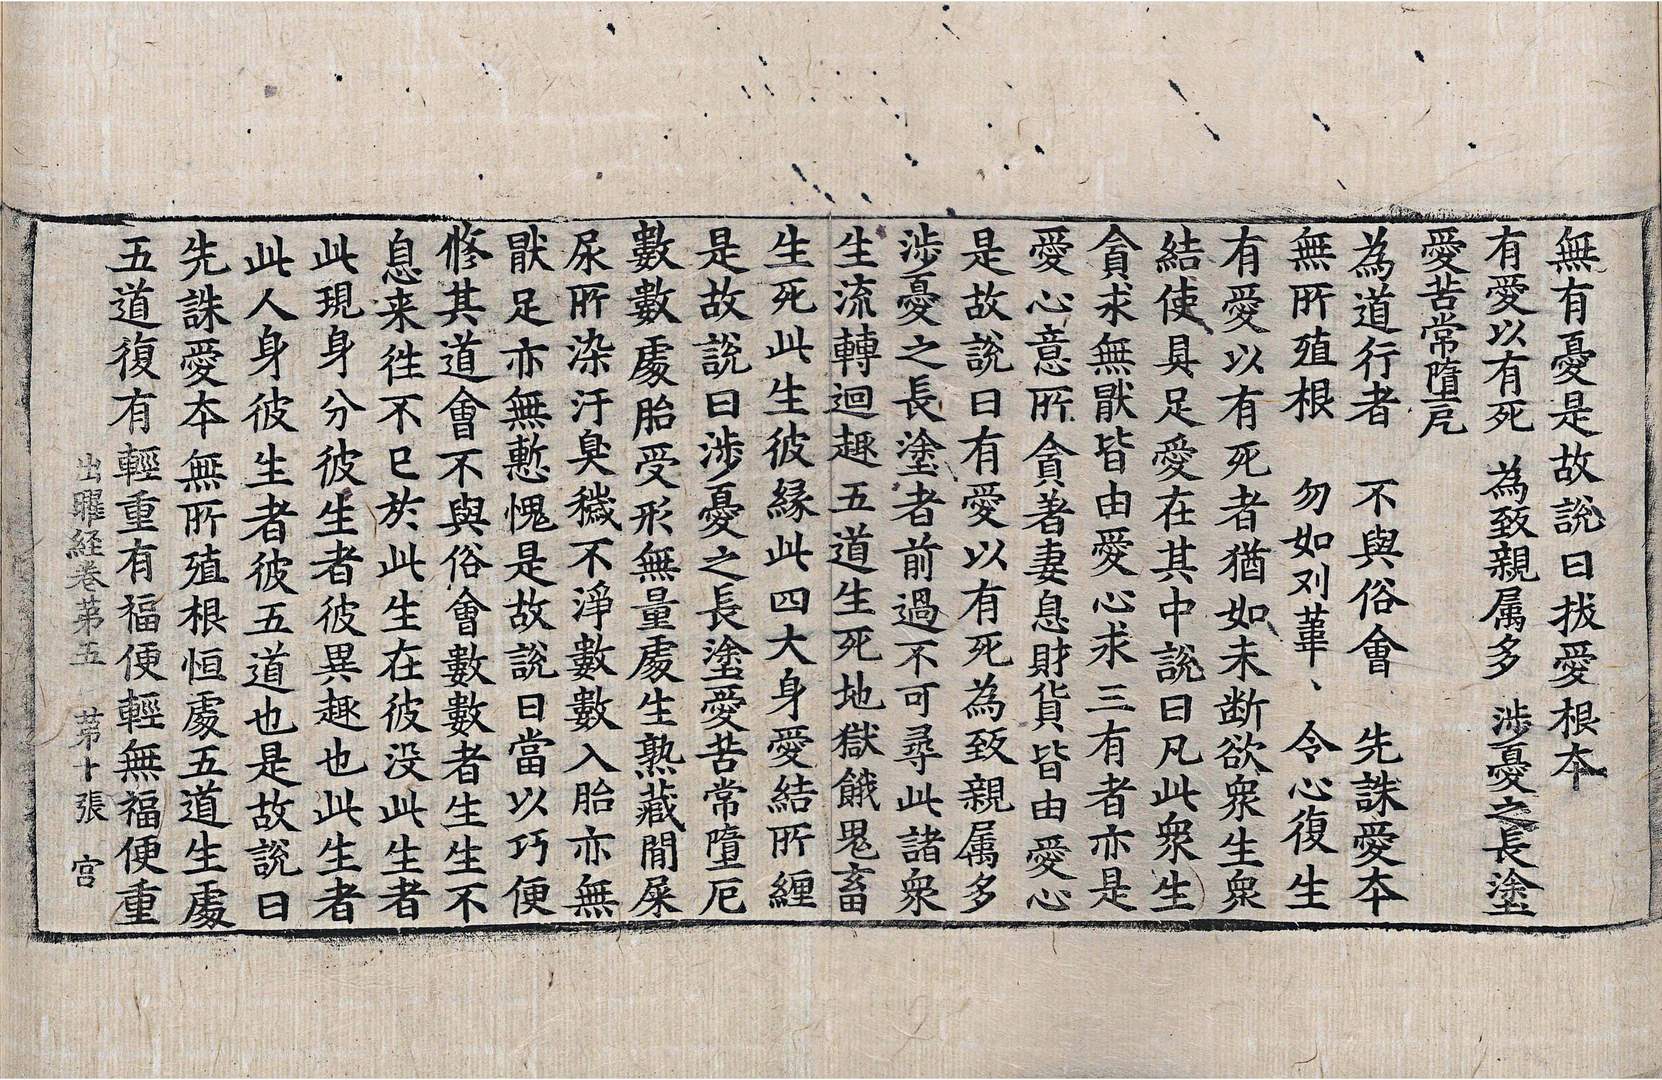 無有憂是故說曰拔愛根本
有愛以有死　為致親属多　涉憂之長塗
愛苦常墮厄
為道行者　不與俗會　先誅愛本
無所殖根　勿如刈葦、　令心復生
有愛以有死者猶如未断欲衆生衆
結使具足愛在其中說曰凡此衆生
貪求無猒皆由愛心求三有者亦是
愛心意所貪著妻息財貨皆由愛心
是故說曰有愛以有死為致親属多
涉憂之長塗者前過不可尋此諸衆
生流轉迴趣五道生死地獄餓鬼畜
生死此生彼緣此四大身愛結所纏
是故說曰涉憂之長塗愛苦常墮厄
數數處胎受形無量處生熟藏間屎
尿所染汙臭穢不淨數數入胎亦無
猒足亦無慙愧是故說曰當以巧便
修其道會不與俗會數數者生生不
息来徃不已於此生在彼没此生者
此現身分彼生者彼異趣也此生者
此人身彼生者彼五道也是故說曰
先誅愛本無所殖根恒處五道生處
五道復有輕重有福便輕無福便重
出曜経卷苐五　苐十張　宫